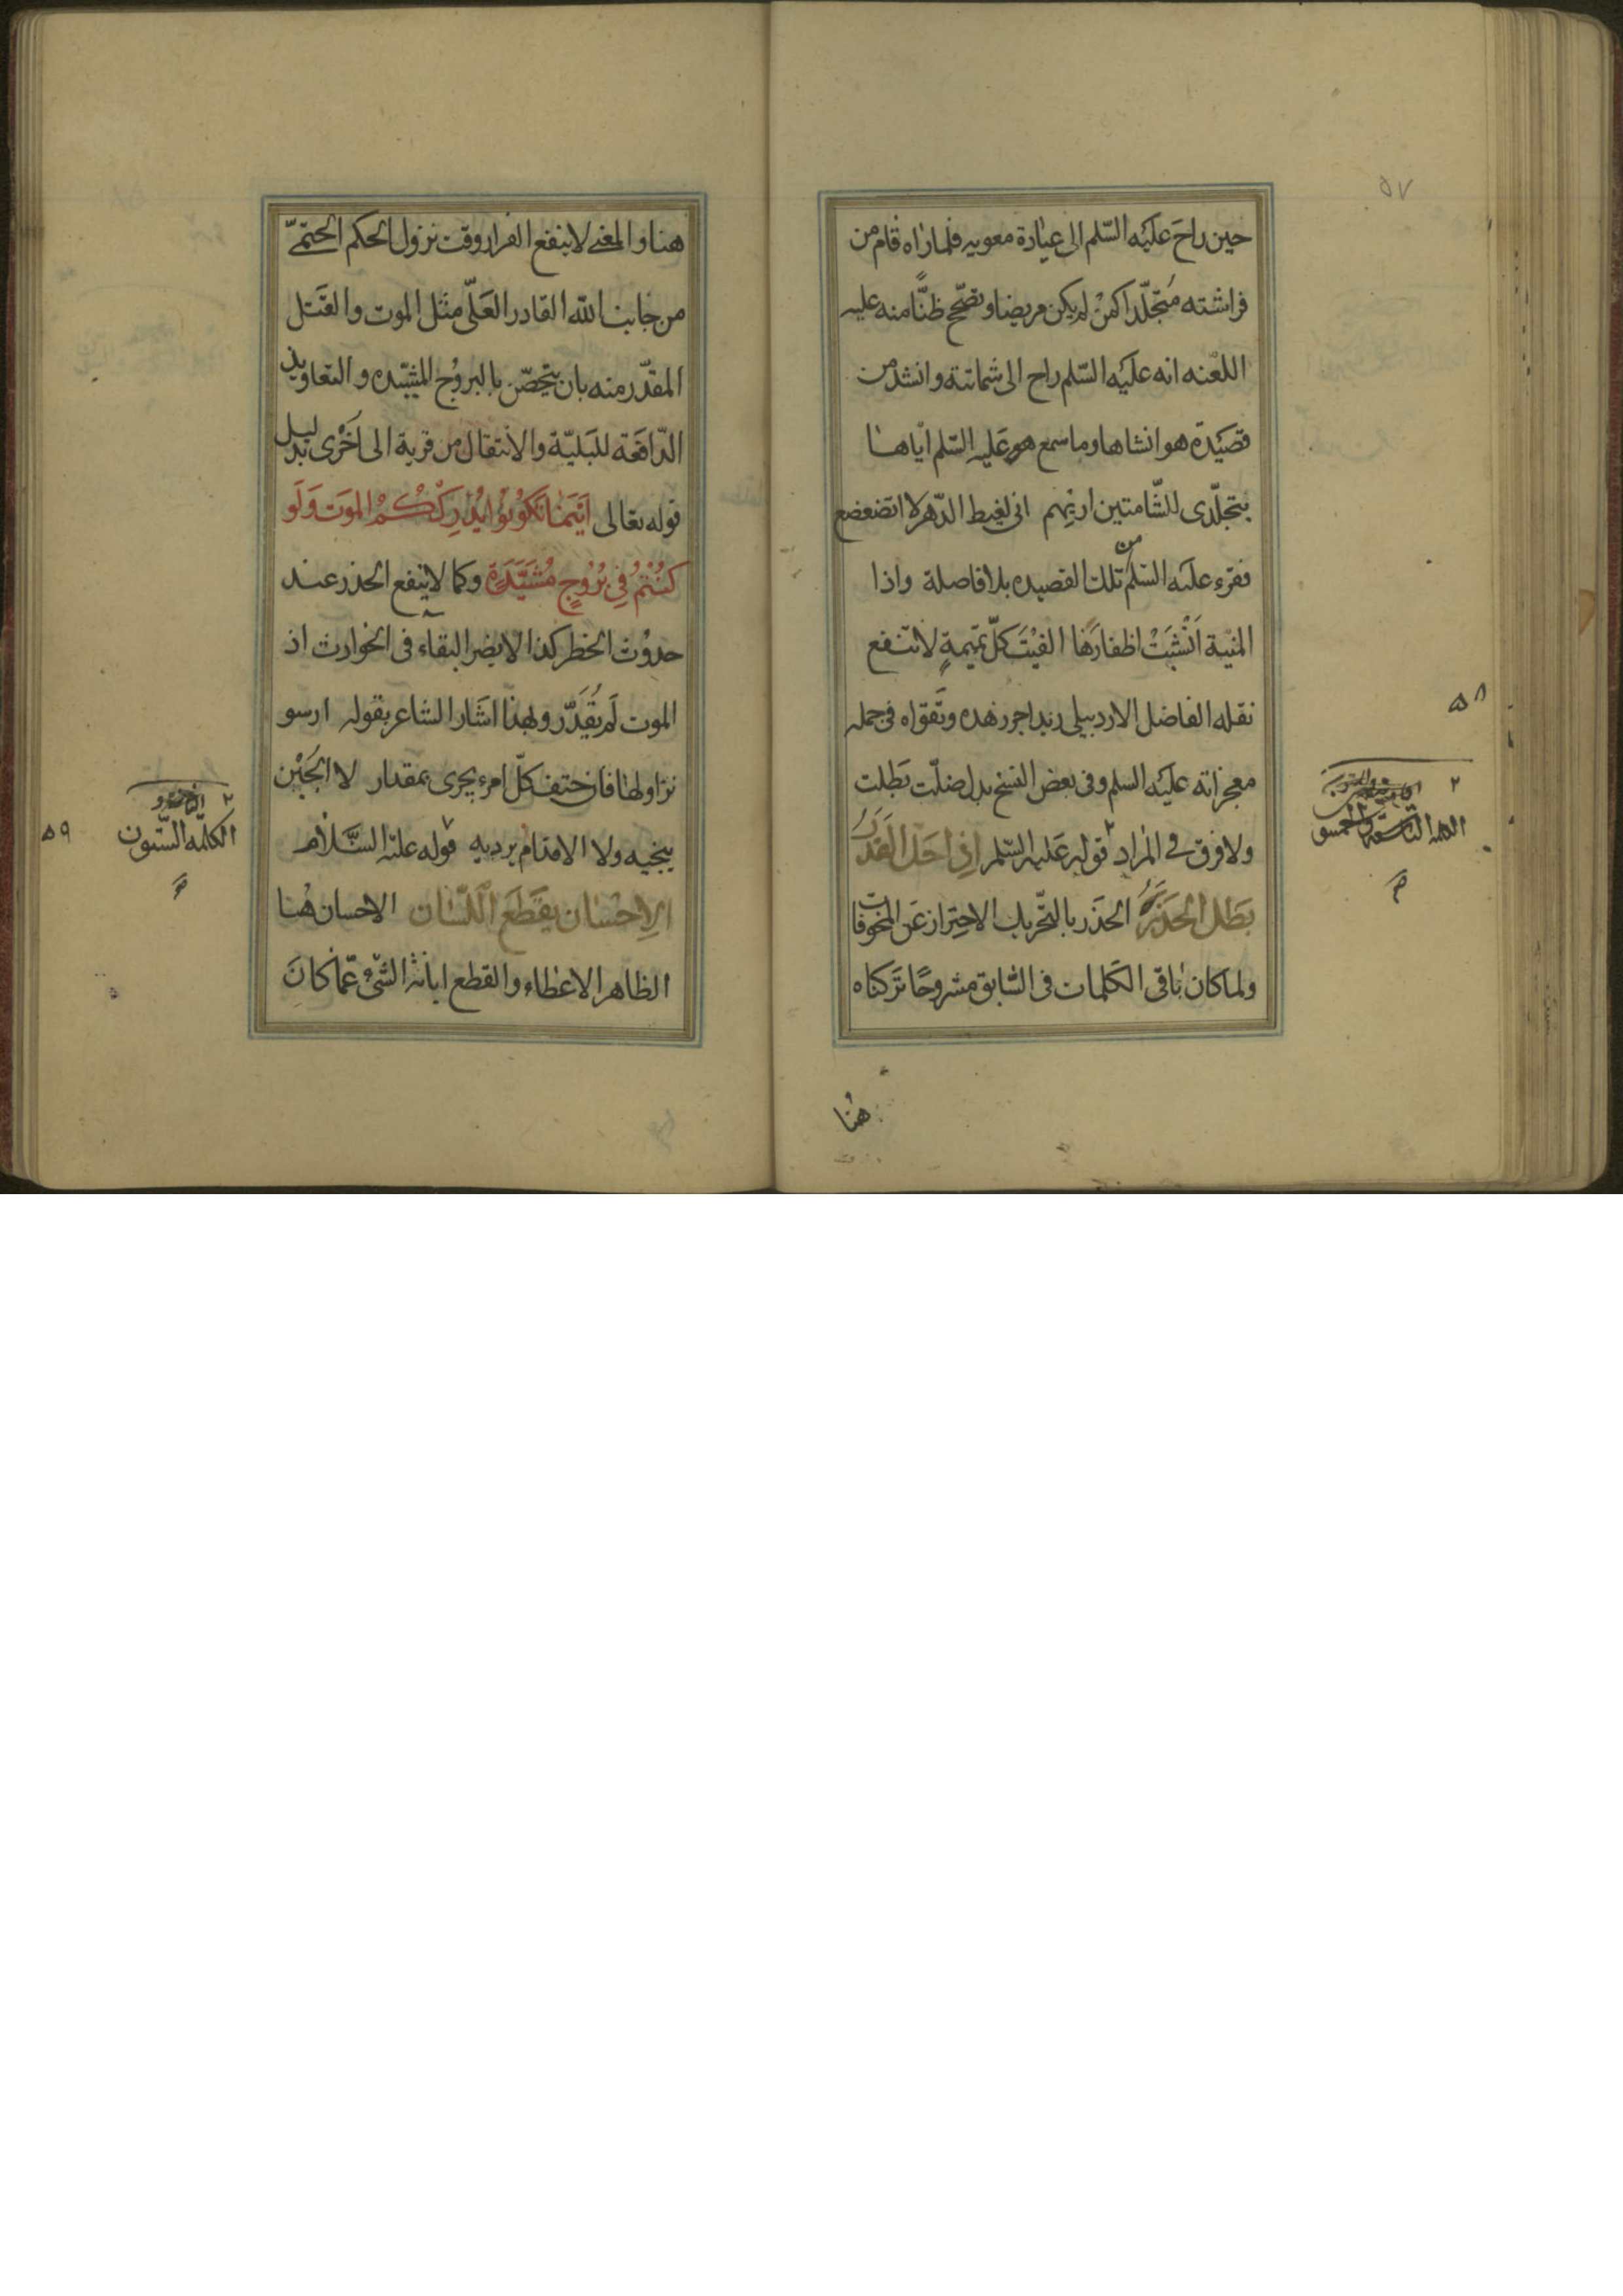 حين راحَ عليَه السّلم الى عيٰادة معويه فلما راٰه قام من
فراشته مُتجلّدا كمنْ لم يكن مريضا وتصّح ظنًّا منه عليه
اللعْنه انه عليَه السّلم راح الى شماتته وانشد من
قصَيدَة هو انشاها وما سمع هو عَليه السّلم اياهٰا
بتجلّدى للشّامتين اريٰهم انى لغيط الدّهر لا اتضعضع
فقرء عليَه السّلم من تلك القصيده بلا فاصلة واذا
المنيّة اَنْشبَتْ اظفارَهٰا الفيْتَ كلّ تميمةٍ لا تنفع
نقله الفاضل الاردبيلى زيد اجر زهده وتَقواه فى جمله
معجزاته عليَه السلم وفى بعض النسخ بدل ضلّت بَطلت
ولا فرق فى المٰراد قوله عَليه السّلم اِذٰا حَلَّ القَدَرُ
بَطَلَ الحَذَرُ الحَذَر بالتّحريك الاحتِراز عَن المخوفات
ولما كان بٰاقى الكَلمات فى السّابق مشروحًا تَركناه
هُنا
۵۷
۵۸
الكلمه التاسعة والخمسو
هنا والمعْنى لا ينفع الفرار وقت نزول الحكم الحَتمّى
من جانب اللّه القادر العَلىّ مثَل الموت والقَتل
المقدّر منه بان يتحصّن بالبروُج المشيّده والتعاويذ
الدّافعَة للبَليّة والانتقال من قرية الى اُخْرٰى بدَليل
قوله تعالى اَيْنمَا تَكوُنوُا يُدْرِكْكُمُ الموَتُ وَلَو
كنُنْتُمْ فِى بُرُوُجٍ مُشَيَّدَةٍ وكما لا ينفع الحذر عند
حدوُث الخطر كذا لا يضر البقاء فى الخوارث اذ
الموت لَم يُقَدّر ولهذا اشَار الشاعر بقوله ارسو
نزاولها فان حتف كلّ امرء يجرى بمقدار لا الجُبْن
ينجيه ولا الاقدام يرديه قوله عليَه السَّلاٰم
اَلِاحْسٰان يَقطَعَ اَللّسٰان الاحسان هُنا
الظاهر الاعطاء والقطع ابانة الشىْء عمّا كانَ
الكلمَه السّتون
۵۹